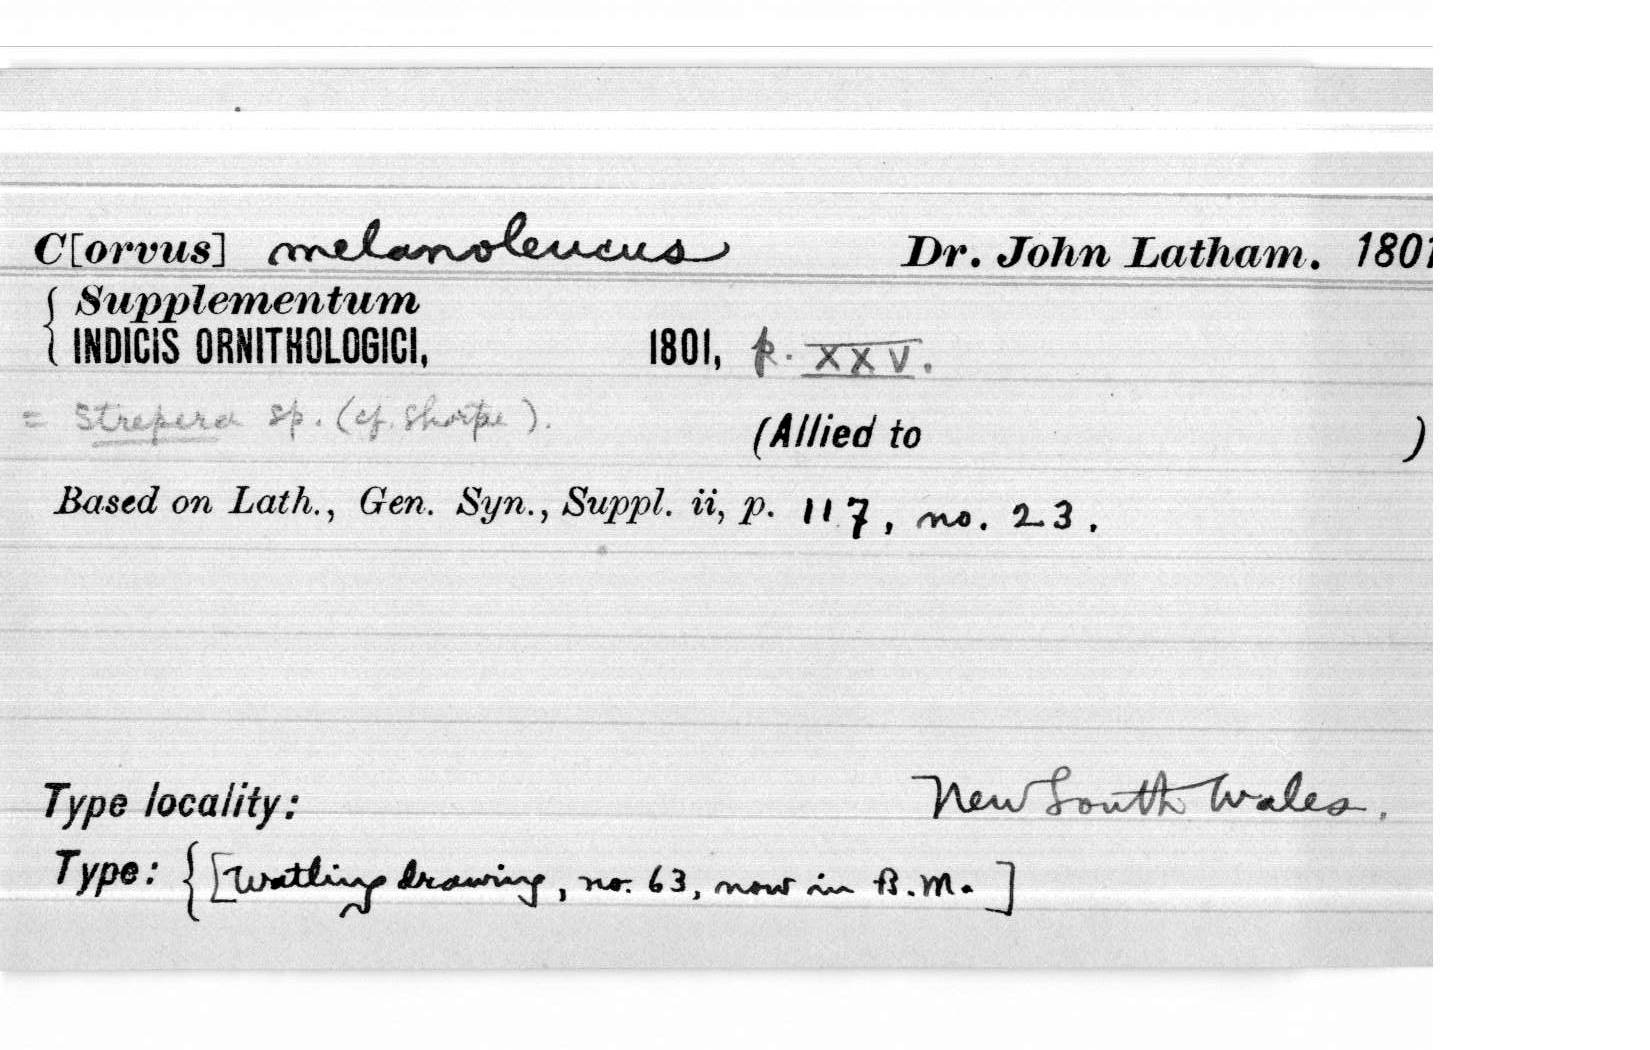 C[orvus] melanoleucus Dr. John Latham. 1801
{ Supplementum
INDICIS ORNITHOLOGICI, 1801, p. XXV.
= Strepera sp. (cf. Sharpe).
(Allied to )
Based on Lath., Gen. Syn., Suppl. ii, p. 117, no. 23.
Type locality: New South Wales.
Type: { [Watling drawing, no. 63, now in B.M.]